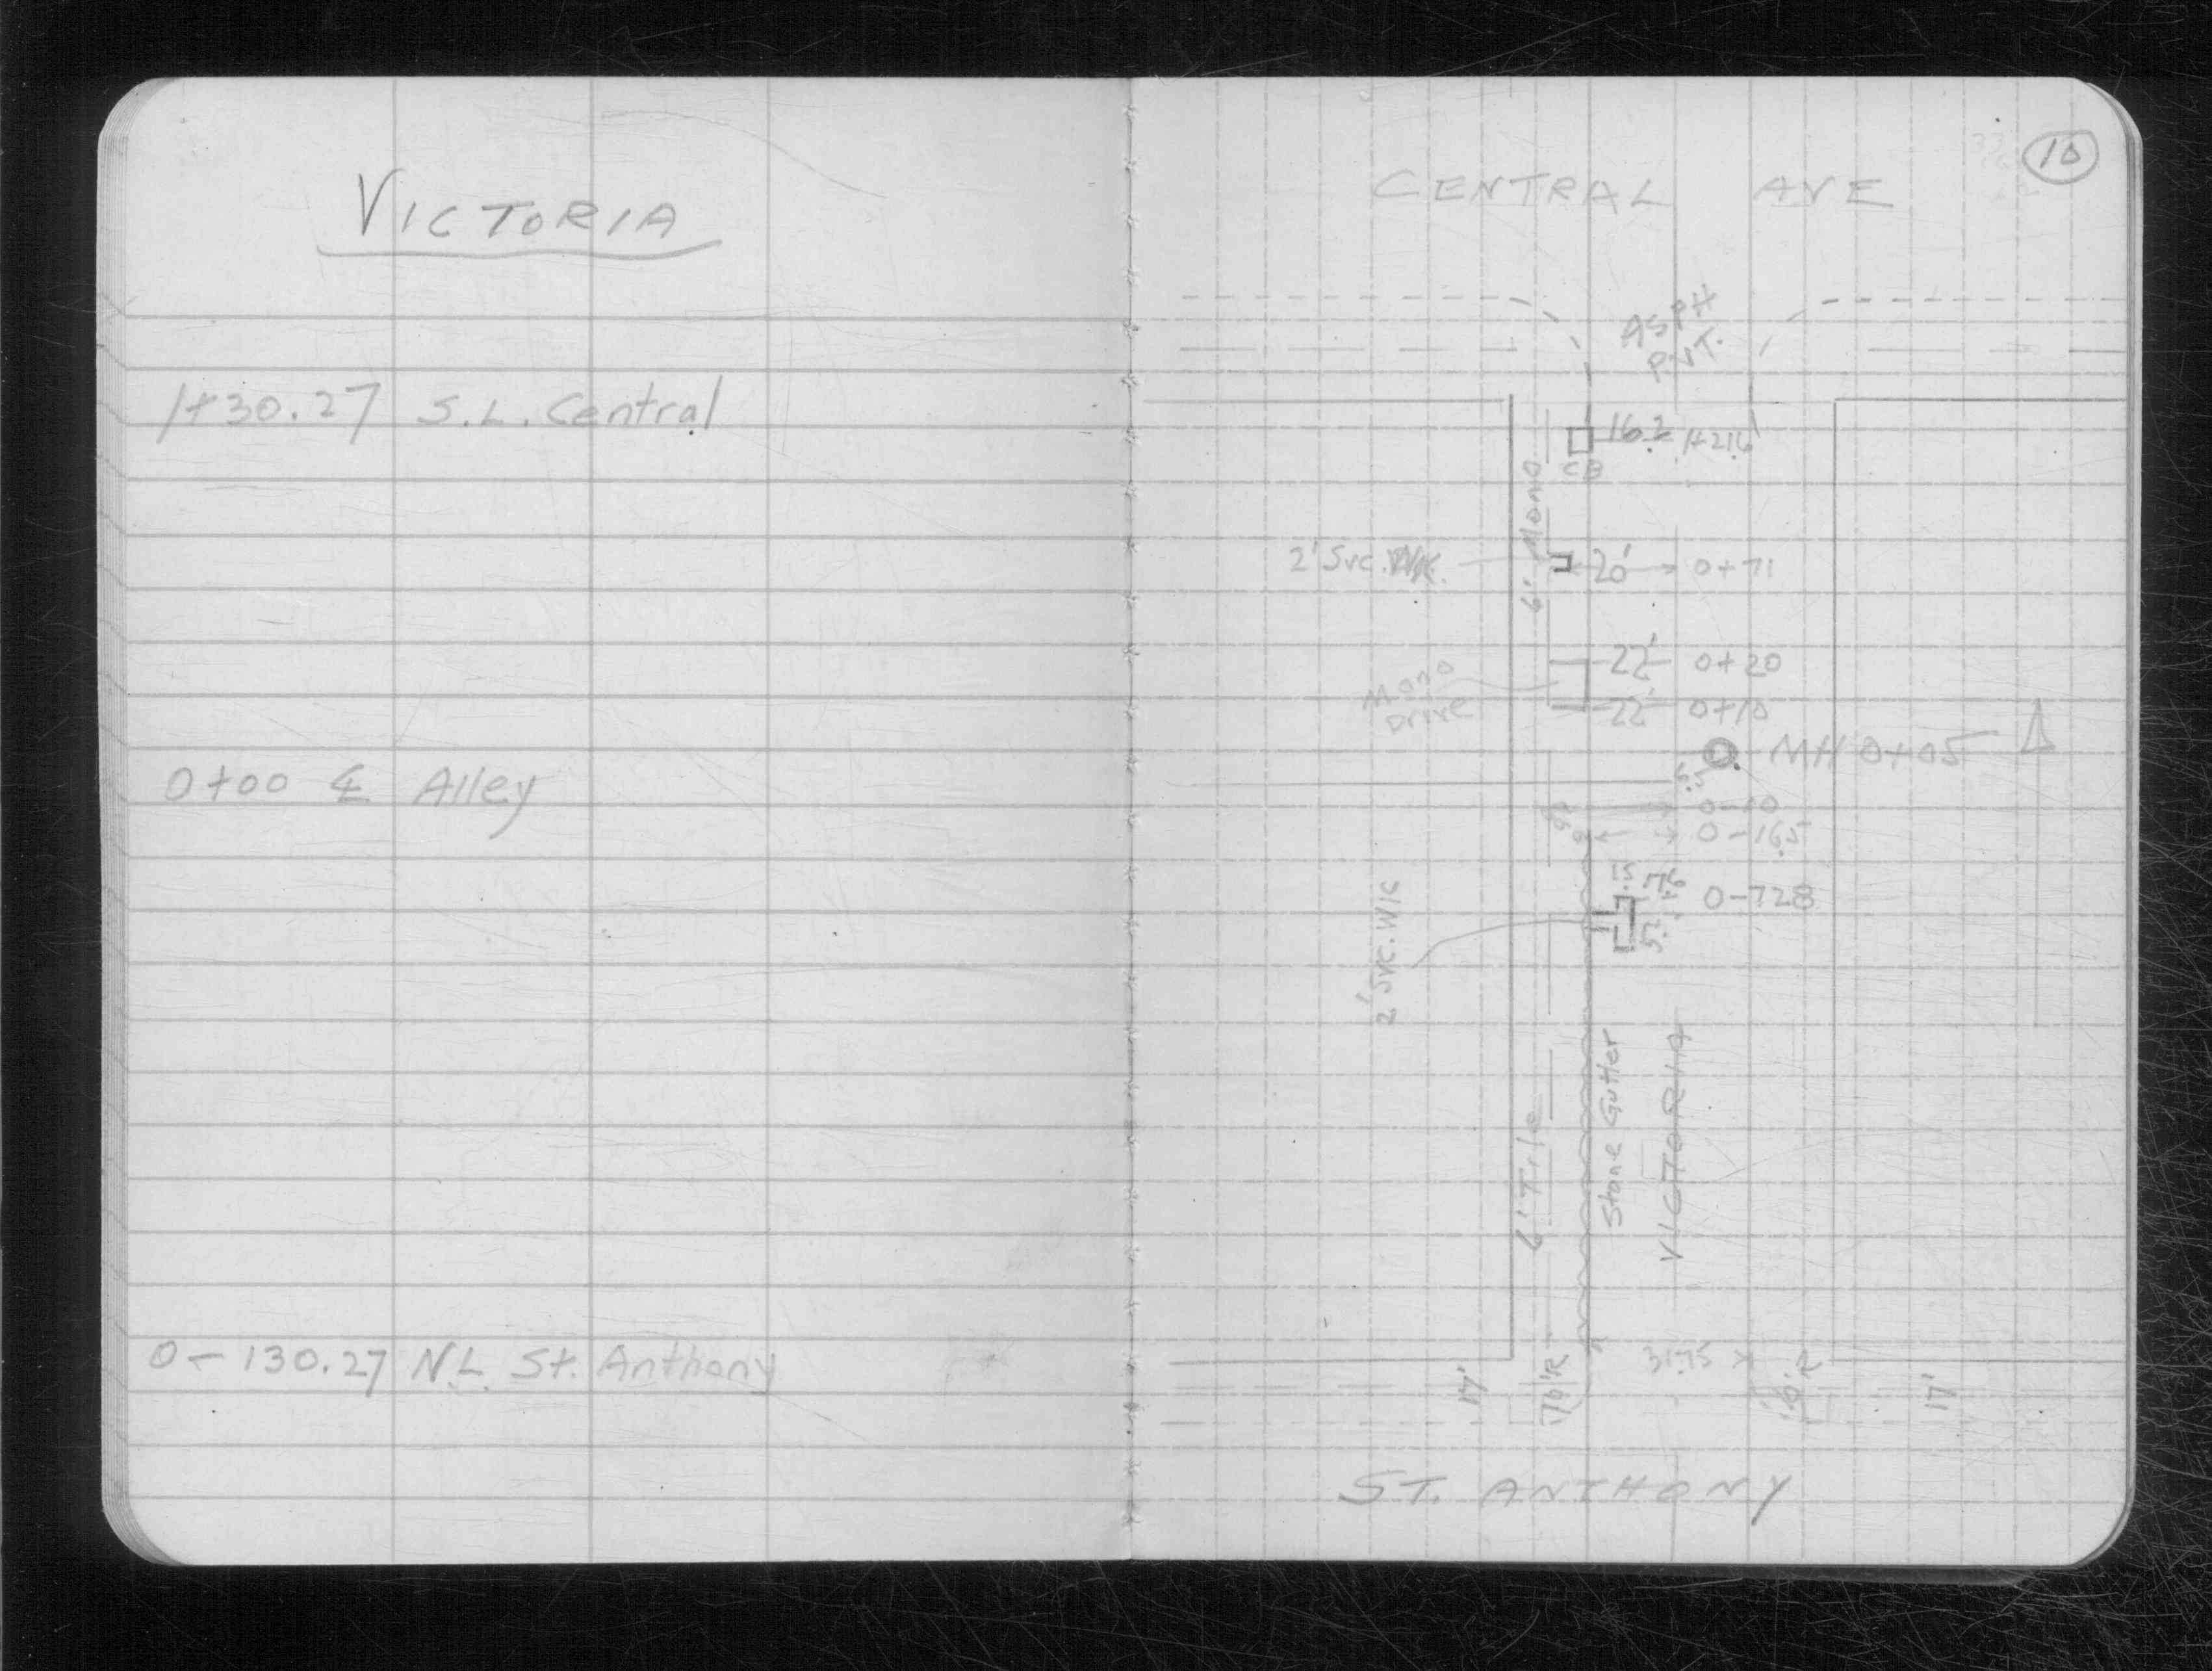 VICTORIA
1+30.27 S.L. Central
0+00 ℄ Alley
0-130.27 N.L. St. Anthony
10
CENTRAL AVE
ASPH
PVT.
16.2 1+21.6
CB
6' Mono
2' Svc. Wk. 20' 0+71
22' 0+20
Mono
Drive
22' 0+10
MH 0+05
6.5
0-10
0-16.5
1.5 7.6 0-72.8
5.2
2' Svc. Wk
6' Tile
Stone Gutter
VICTORIA
31.75
17'
10'R
10'R
17'
ST. ANTHONY